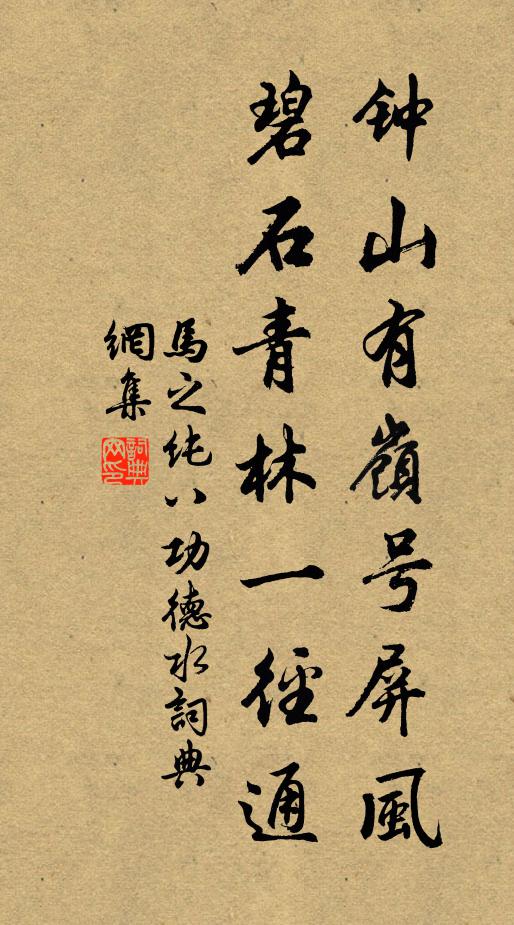 钟山有嶺号屏風
碧石青林一徑通
馬之纯八功德水詞典
網集
詞典
网印